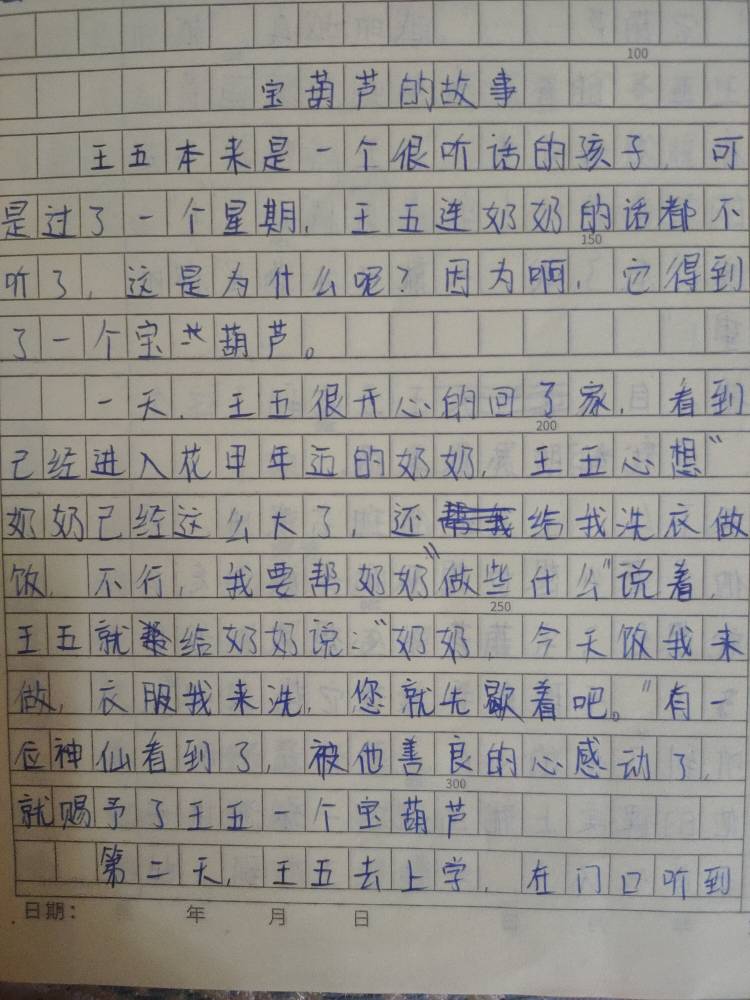 100
宝葫芦的故事
王五本来是一个很听话的孩子，可
是过了一个星期，王五连奶奶的话都不
150
听了，这是为什么呢？因为啊，它得到
了一个宝葫芦。
一天，王五很开心的回了家，看到
200
已经进入花甲年迈的奶奶，王五心想“
奶奶已经这么大了，还给我洗衣做
饭，不行，我要帮奶奶”做些什么“说着，
250
王五就给奶奶说：“奶奶，今天饭我来
做，衣服我来洗，您就先歇着吧。”有一
位神仙看到了，被他善良的心感动了，
300
就赐予了王五一个宝葫芦
第二天，王五去上学，在门口听到
日期： 年 月 日